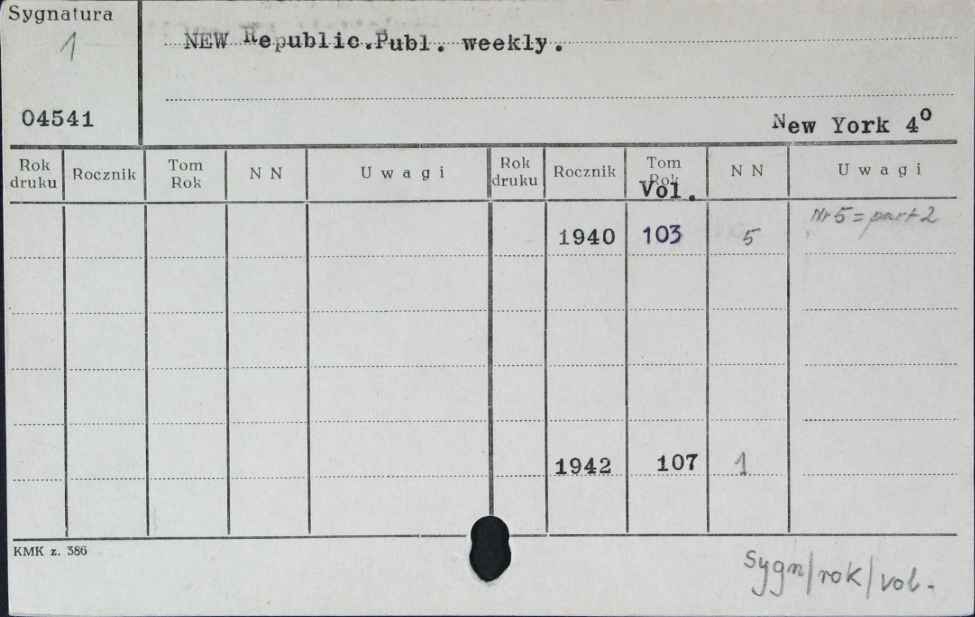 Sygnatura
1
NEW Republic.Publ. weekly.
04541
New York 4º
Rok druku Rocznik Tom Rok N N Uwagi Rok druku Rocznik Tom Rok N N Uwagi
Vol.
Nr 5 = part 2
1940 103 5
1942 107 1
KMK z. 386
Sygn/rok/vol.